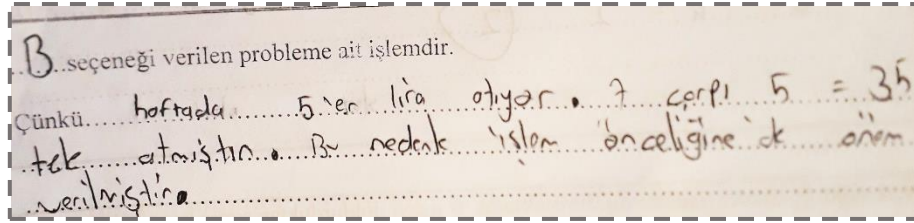 B seçeneği verilen probleme ait işlemdir.
Çünkü haftada 5'er lira atıyor. 7 çarpı 5 = 35
tek atmıştın. Bu nedenle işlem önceliğine önem
verilmiştir.